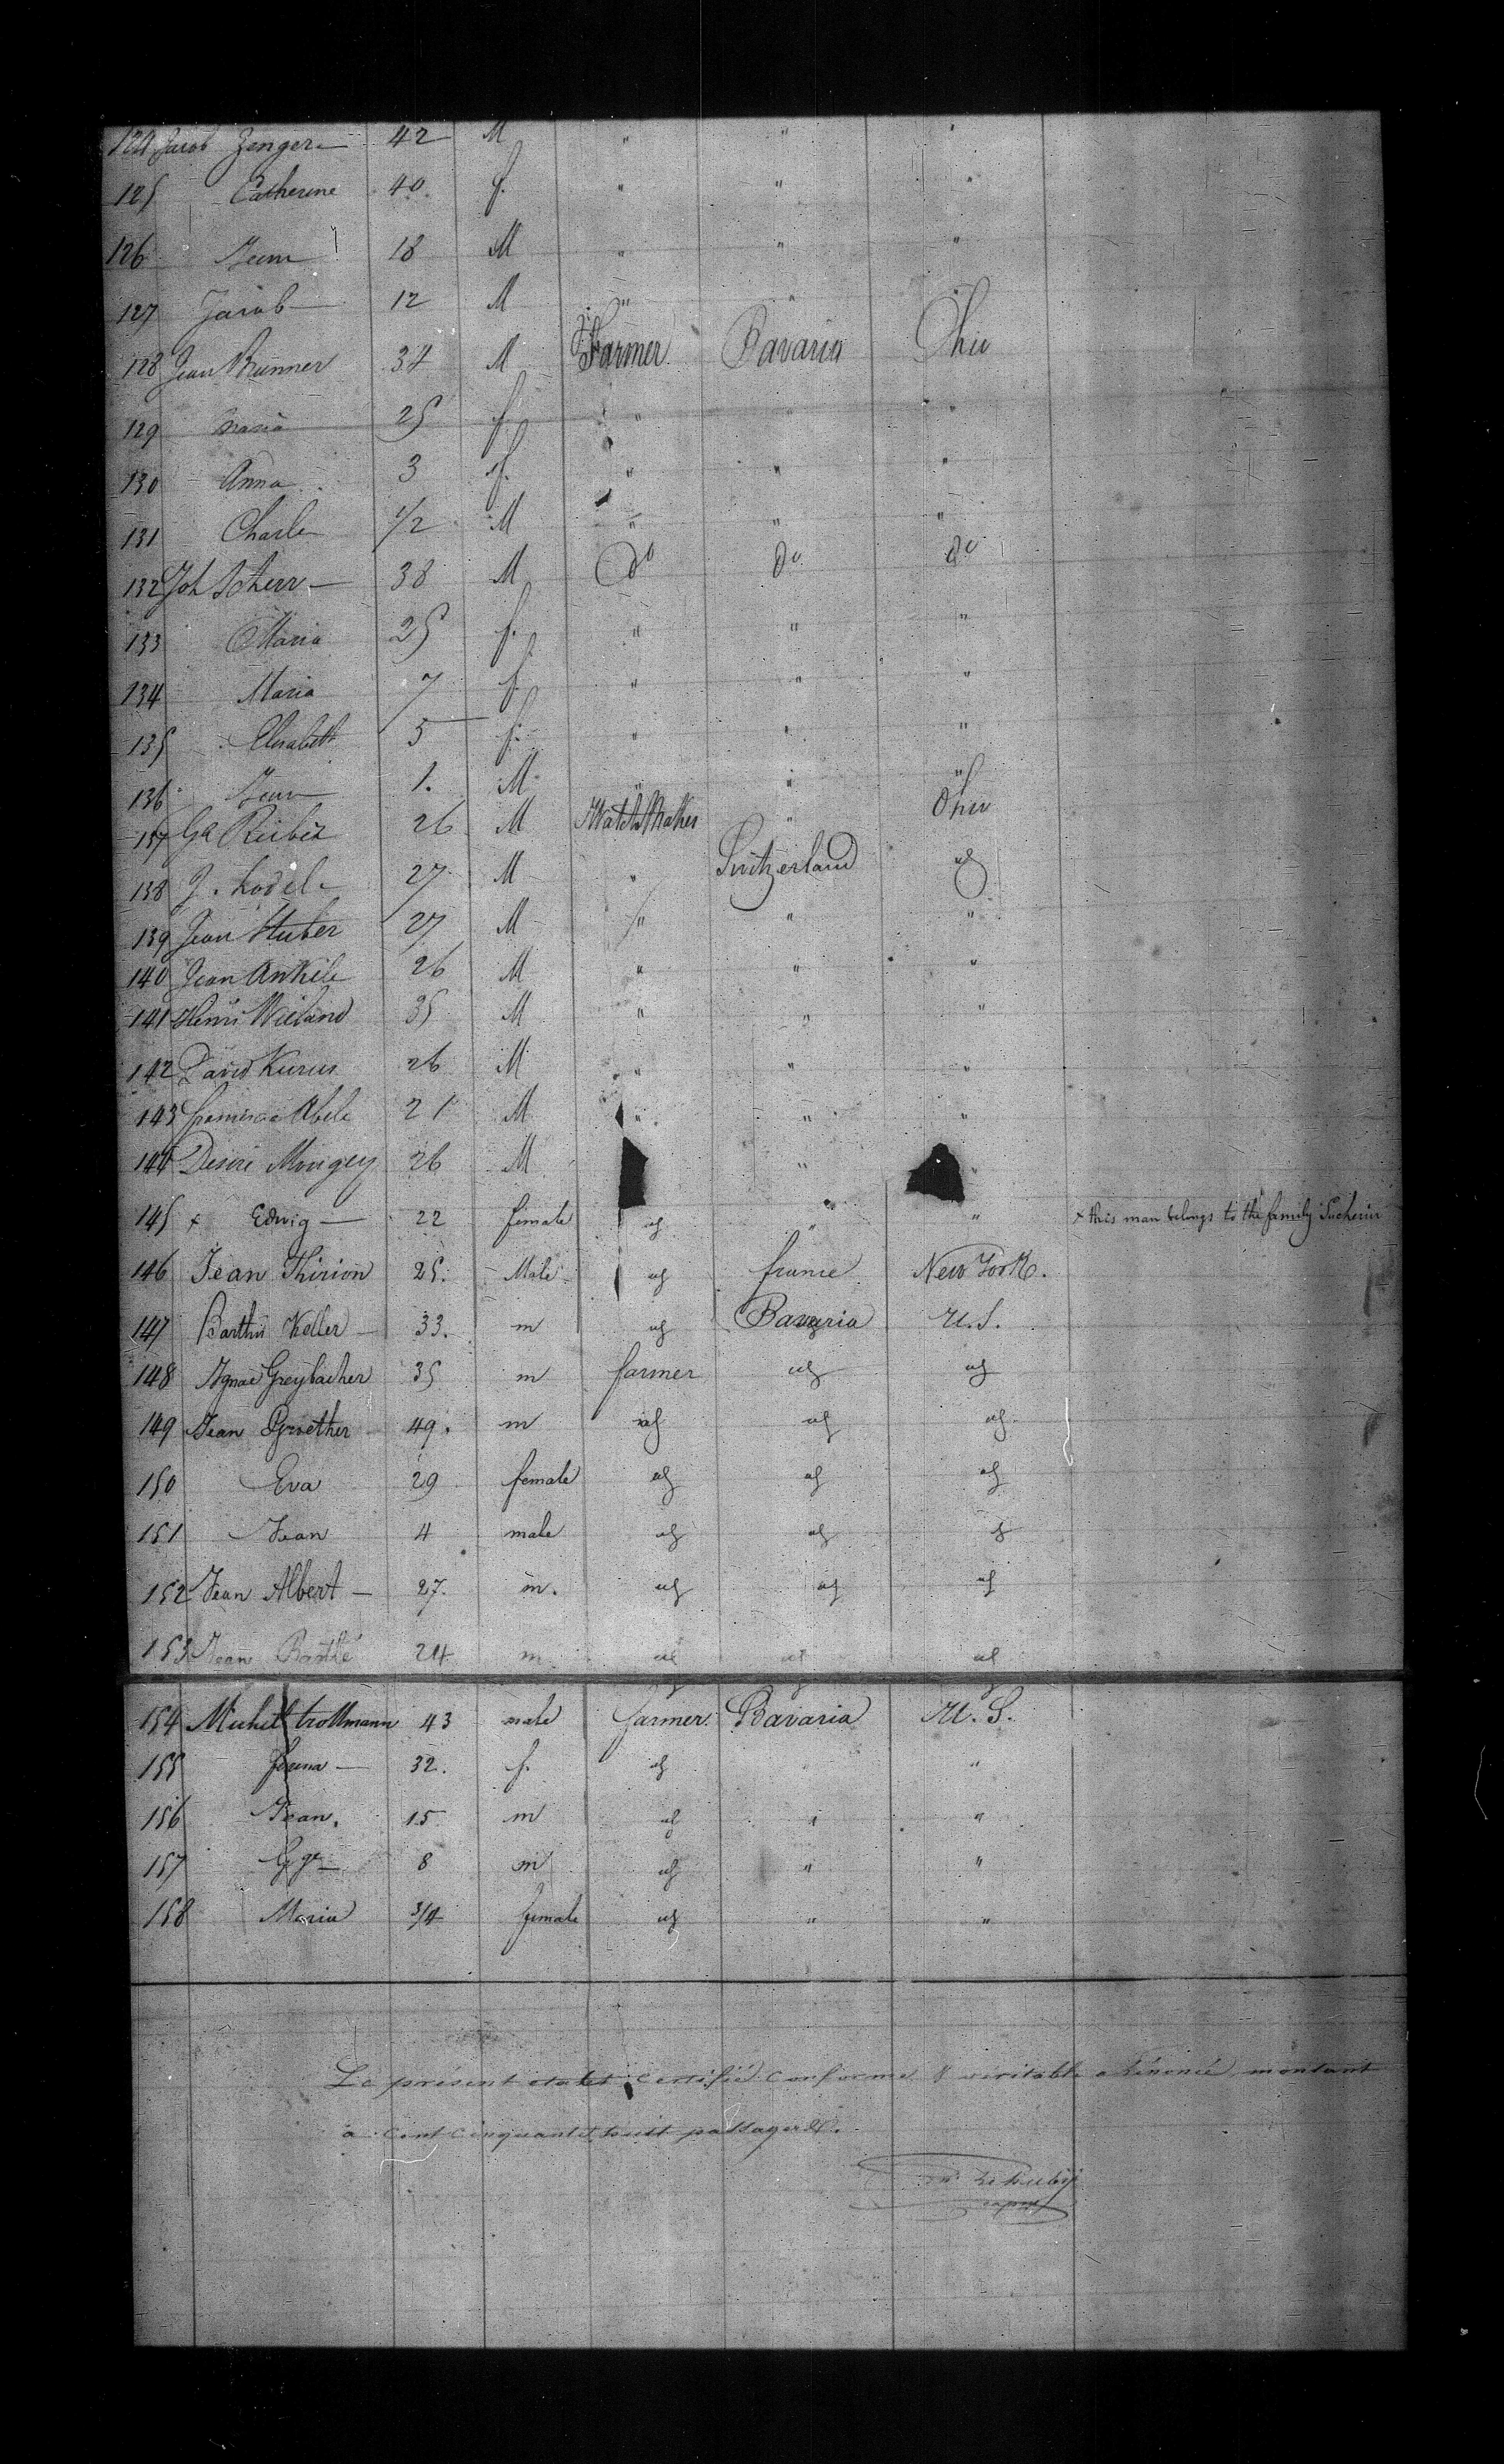 124 Jacob Zenger — 42 M " " "
125 Catherine 40. f. " " "
126 Jean 18 M " " "
127 Jacob — 12 M " " "
128 Jean Brunner 34 M Farmer Bavaria Ohio
129 Maria 25 f " " "
130 Anna 3 f. " " "
131 Charle 1/2 M " " "
132 Joh Scherr — 38 M do do do
133 Maria 25 f. " " "
134 Maria 7 f. " " "
135 Elisabeth 5 f. " " "
136 Jean 1. M " " "
137 26 M Watch Maker " Ohio
138 J. 27 M " Switzerland id
139 Jean Huber 27 M " " "
140 Jean Ankele 26 M " " "
141 Henri Wieland 35 M " " "
142 David 26 M " " "
143 Abele 21 M " " "
144 Desiré Mougey 26 M " "
145 x Edwig — 22 female id " " x this man belongs to the family
146 Jean Thirion 25. Male id france New York.
147 Barthri Keller — 33. m id Bavaria U.S.
148 Ignace Greybacher 35 m farmer id id
149 Jean 49. m id id id
150 Eva 29 female id id id
151 Jean 4 male id id id
152 Jean Albert — 27. m. id id id
153 Jean Barthé 24 m id id id
154 Michel trollmann 43 male farmer. Bavaria U.S.
155 — 32. f. id "
156 Jean. 15 m id " "
157 Gge — 8 m id " "
158 Maria 3/4 female id " "
Le présent état est certifié conforme & véritable montant
à cent cinquante huit passagers.